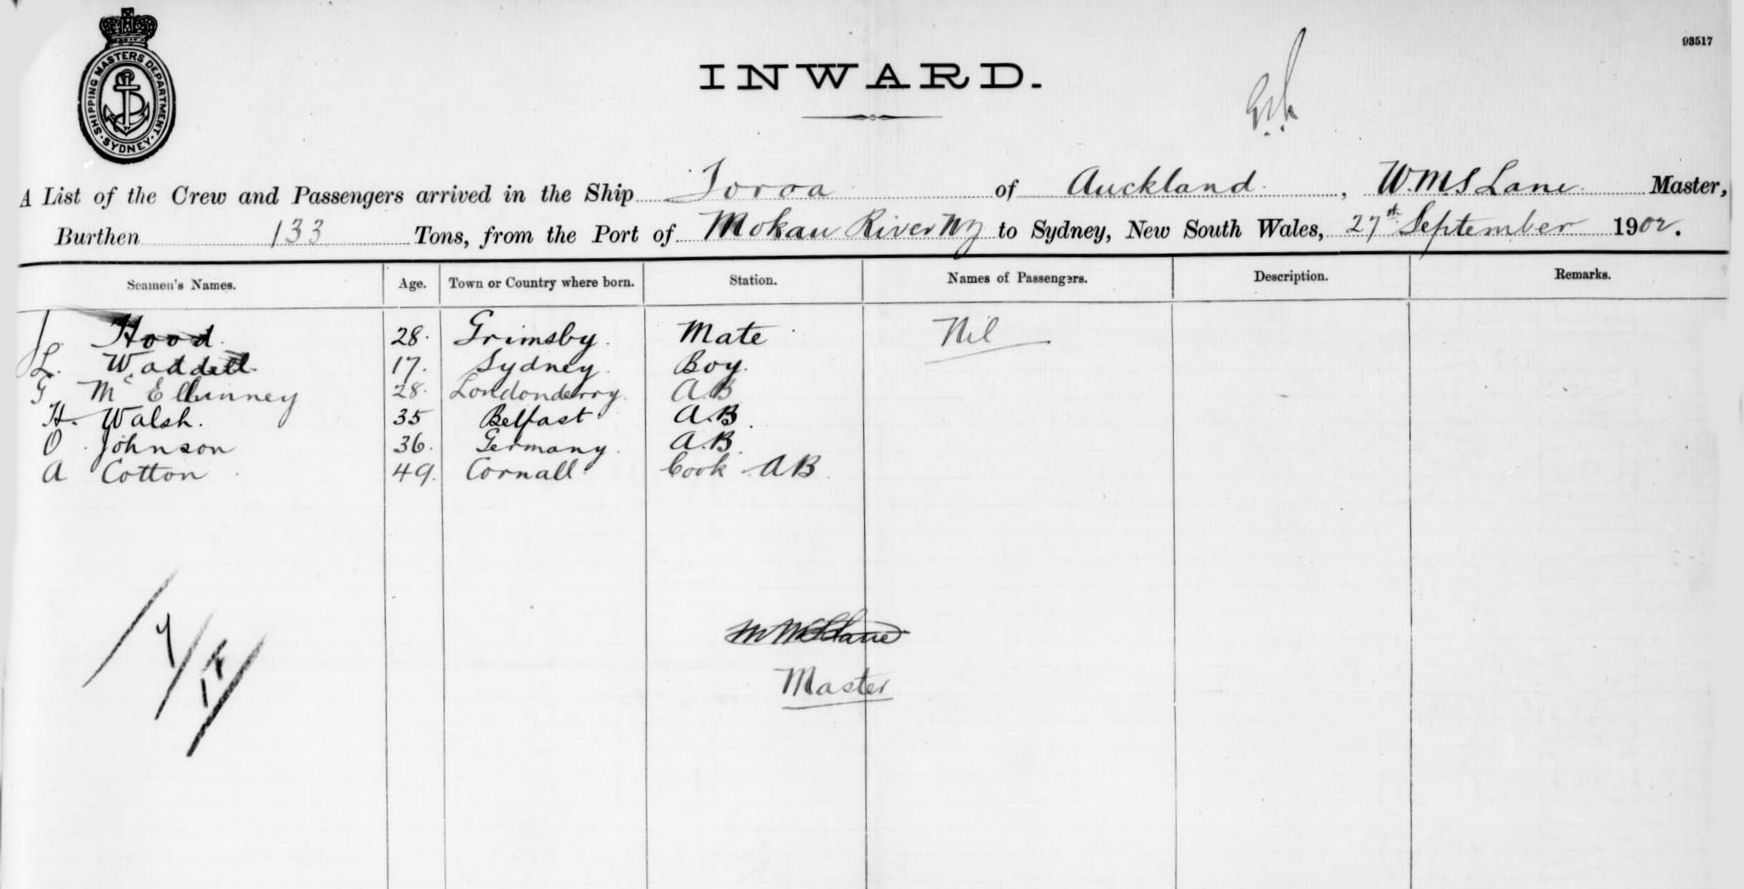 93517
SHIPPING MASTERS DEPARTMENT
SYDNEY
INWARD.
A List of the Crew and Passengers arrived in the Ship Toroa of Auckland, W.M.S Lane Master,
Burthen 133 Tons, from the Port of Mokau River NZ to Sydney, New South Wales, 27th September 1902.
Seamen's Names. Age. Town or Country where born. Station. Names of Passengers. Description. Remarks.
J. Hood 28. Grimsby. Mate Nil
L. Waddell 17. Sydney. Boy.
G McElhinney 28. Londonderry. A.B
H. Walsh. 35 Belfast A.B.
O Johnson 36. Germany. A.B.
A Cotton 49. Cornall Cook AB
Master